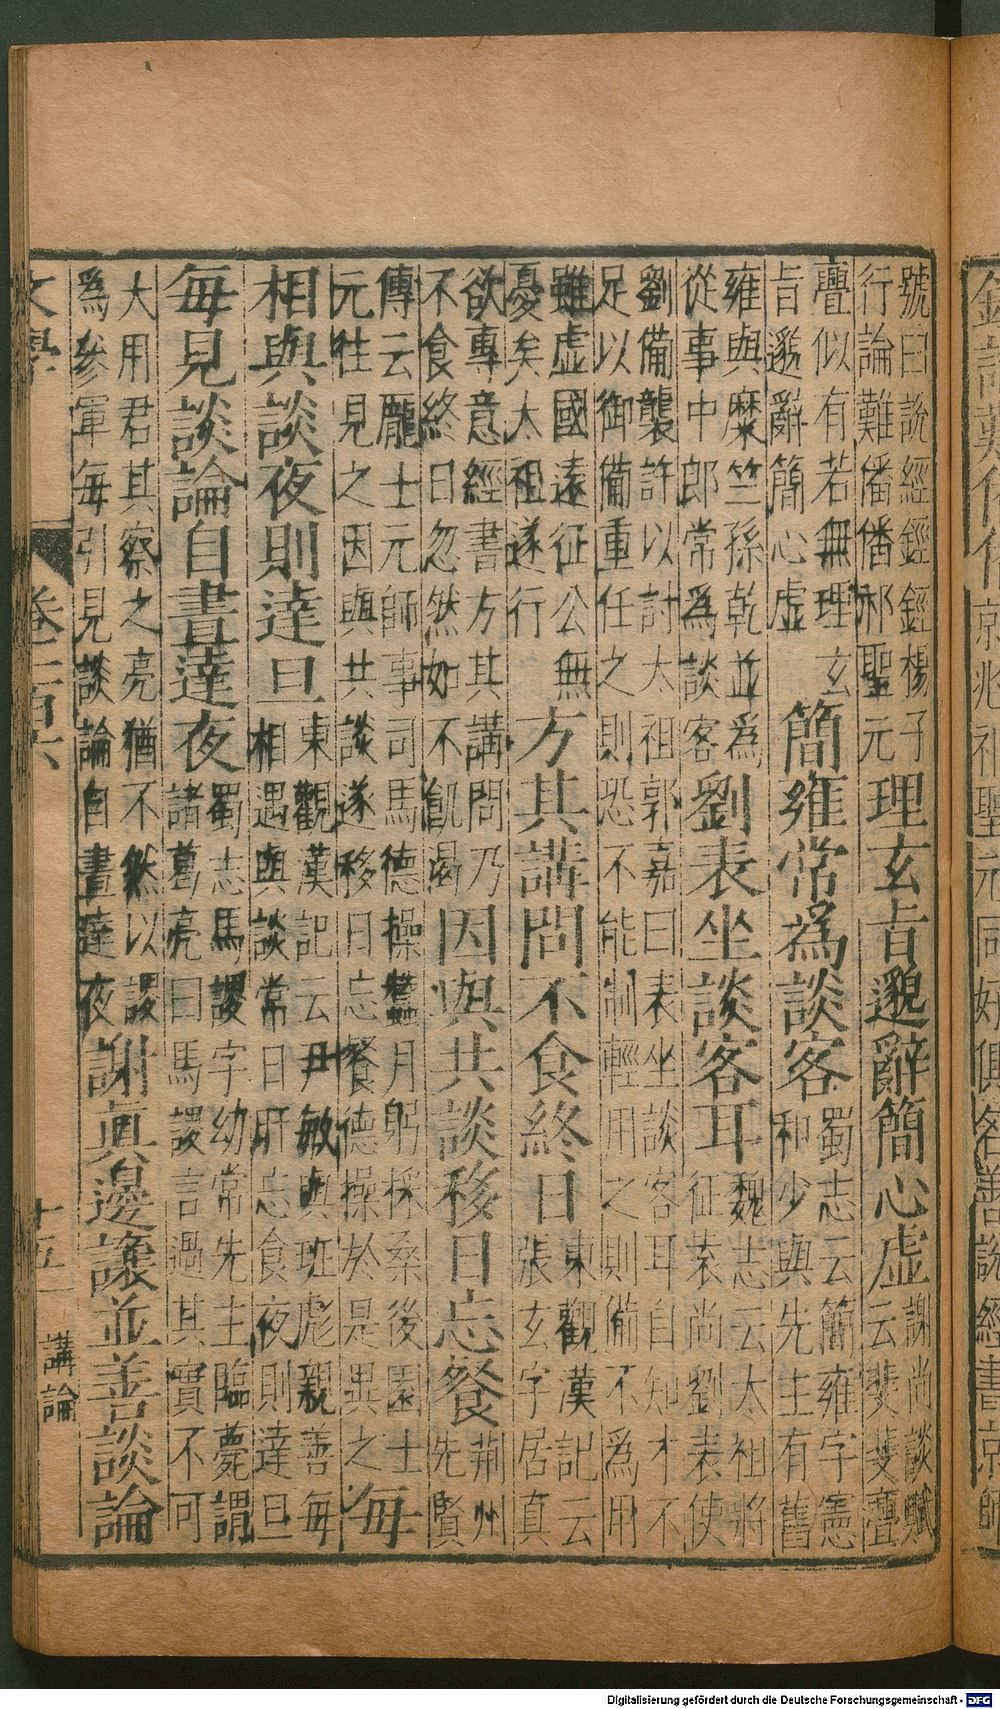 京兆祁聖元同好俱名善說經書京師
號曰說經鏗鏗楊子
行論難僠僠祁聖元
理玄旨邈辭簡心虛
謝尚談賦
云斐斐亹
亹似有若無理玄
旨邈辭簡心虛
簡雍常為談客
蜀志云簡雍字憲
和少與先主有舊
雍與糜竺孫乾並為
從事中郎常為談客
劉表坐談客耳
魏志云太祖將
征袁尚劉表使
劉備襲許以討太祖郭嘉曰表坐談客耳自知才不
足以御備重任之則恐不能制輕用之則備不為用
雖虛國遠征公無
憂矣太祖遂行
方其講問不食終日
東觀漢記云
張玄字居真
欲專意經書方其講問乃
不食終日忽然如不飢渴
因與共談移日忘餐
荊州
先賢
傳云龐士元師事司馬德操蠶月躬採桑後園士
元往見之因與共談遂移日忘餐德操於是異之
每
相與談夜則達旦
東觀漢記云尹敏與班彪親善每
相遇與談常日旰忘食夜則達旦
每見談論自晝達夜
蜀志馬謖字幼常先主臨薨謂
諸葛亮曰馬謖言過其實不可
大用君其察之亮猶不然以謖
為參軍每引見談論自晝達夜
謝真邊讓並善談論
文學
卷 百六
十五
講論
Digitalisierung gefördert durch die Deutsche Forschungsgemeinschaft - DFG